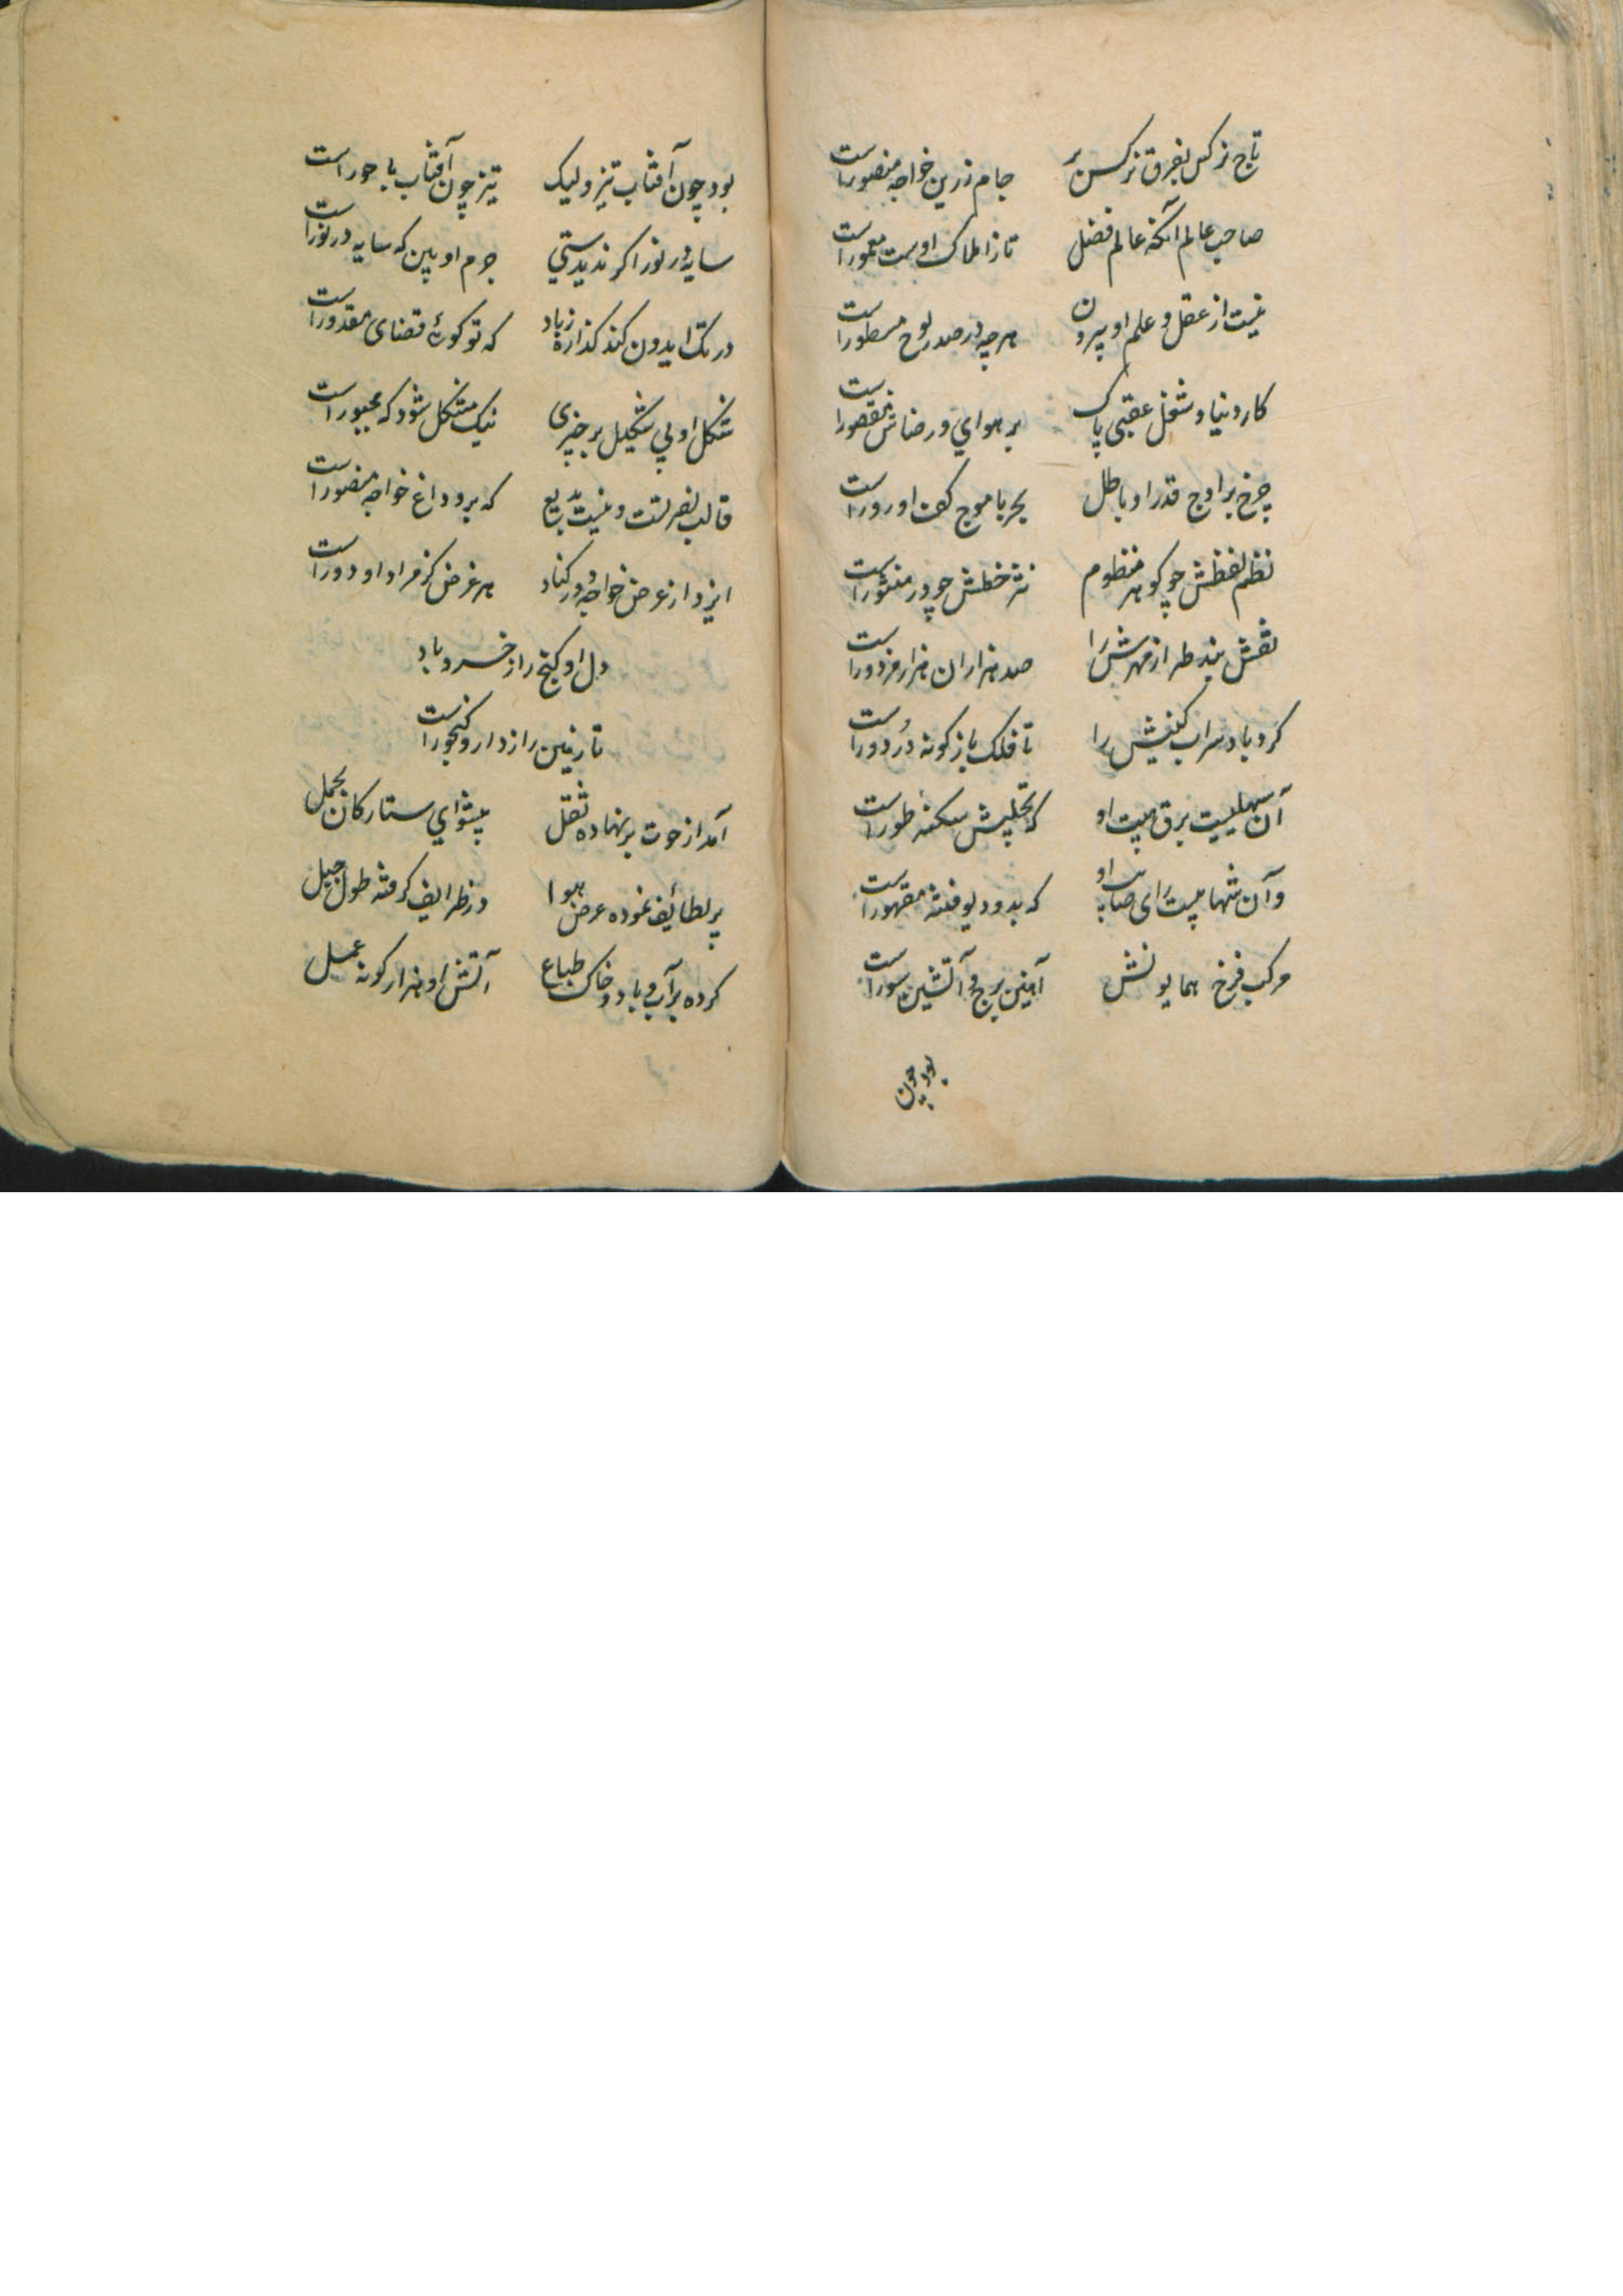 تاج نرکس بفرق نرکس بر جام زرین خواجه منصور است
صاحب عالم آنکه عالم فضل تازاملاک اوست معمور است
نیست از عقل و علم او بیرون هر چه در صدر لوح مسطور است
کار دنیا و شغل عقبی پاک بر هوای و رضاش مقصور است
چرخ بر اوج قدر او باطل بحر با موج کف او زور است
نظم لفظش چو کوهر منظوم نثر خطش چو در منثور است
نقش بند طراز مهرش را صد هزاران هزار مزدور است
کرد باد سراب کینش را تا فلک باز کونه در دور است
آن سهلیست برق هیبت او که تجلیش سکنه طور است
وآن شهابیست رای صایب او که بدو دیو فتنه مقهور است
مرکب فرخ همایونش آهنین برج و آتشین سور است
بود چون
بود چون آفتاب تیز ولیک تیز چون آفتاب با حور است
سایه در نور اکر ندیدستی جرم او بین که سایه در نور است
در تک ایدون کند کذاره زباد که تو کوئی قضای مقدور است
شکل او بی شکیل بر خبری نیک مشکل شود که مجبور است
قالب نصرتست و نیست بدیع که برو داغ خواجه منصور است
ایزد از عرض خواجه دور کناد هر غرض کز مراد او دور است
دل او کنج راز خسرو باد
تا زمین رازدار و کنجور است
آمد از حوت بر نهاده ثقل پیشوای ستارکان بحمل
بر لطائف نموده عرض هوا در ظرایف کرفته طول جبل
کرده بر آب و باد و خاک طباع آتش او هزار کونه عمل